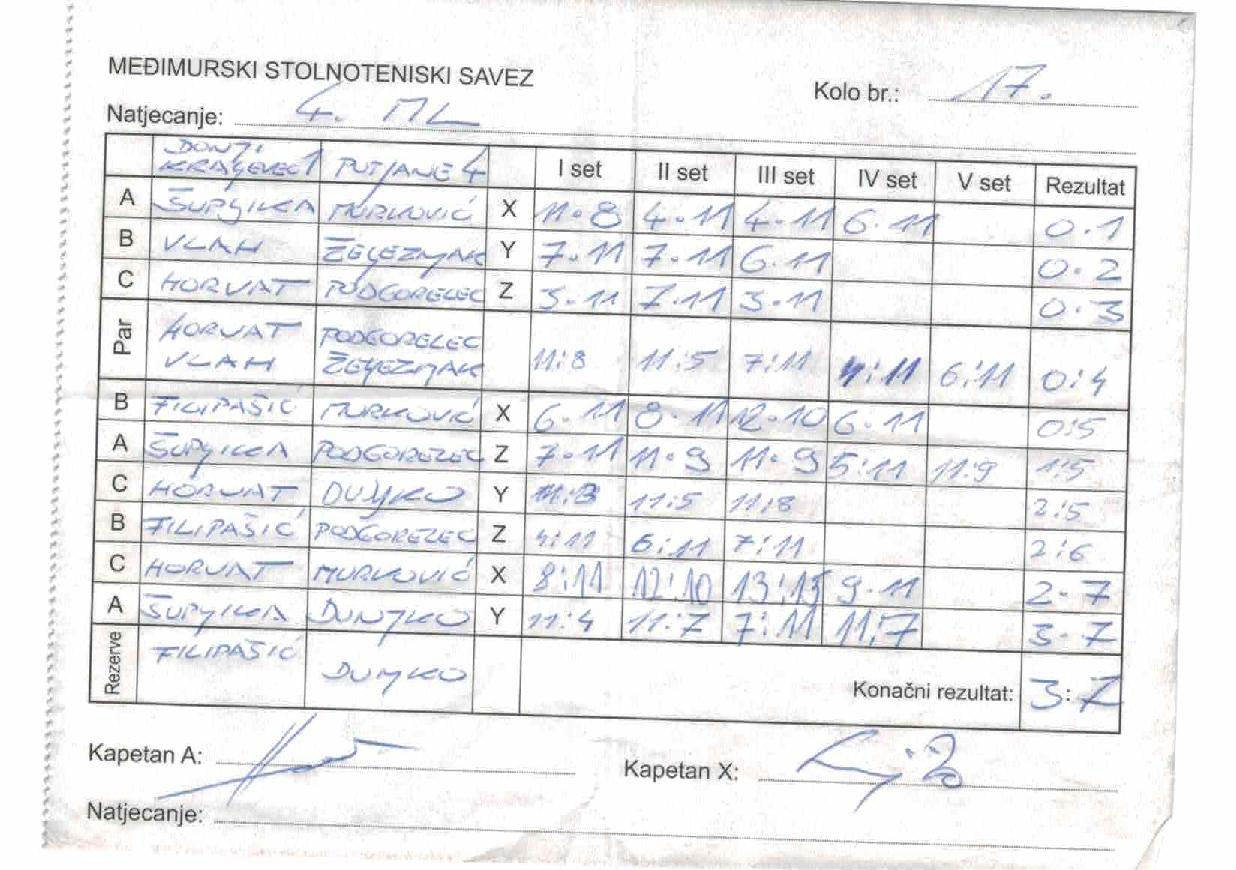 MEĐIMURSKI STOLNOTENISKI SAVEZ
Kolo br.: 17.
Natjecanje: 4. ML
DONJI KRALJEVEC 1 PUTJANE 4 I set II set III set IV set V set Rezultat
A ŠUPLJIKA MURKOVIĆ X 11-8 4-11 4-11 6-11 0-1
B VLAH ŽELJEZNJAK Y 7-11 7-11 6-11 0-2
C HORVAT PODGORELEC Z 3-11 7-11 3-11 0-3
Par HORVAT VLAH PODGORELEC ŽELJEZNJAK 11:8 11:5 7:11 4:11 6:11 0:4
B FILIPAŠIĆ MURKOVIĆ X 6-11 8-11 12-10 6-11 0:5
A ŠUPLJIKA PODGORELEC Z 7-11 11-9 11-9 5:11 11:9 1:5
C HORVAT DUNJKO Y 11:3 11:5 11:8 2:5
B FILIPAŠIĆ PODGORELEC Z 4:11 6:11 7:11 2:6
C HORVAT MURKOVIĆ X 8:11 12:10 13:15 9-11 2-7
A ŠUPLJIKA DUNJKO Y 11:4 11:7 7:11 11:7 3-7
Rezerve FILIPAŠIĆ DUNJKO Konačni rezultat: 3:7
Kapetan A:
Kapetan X:
Natjecanje: